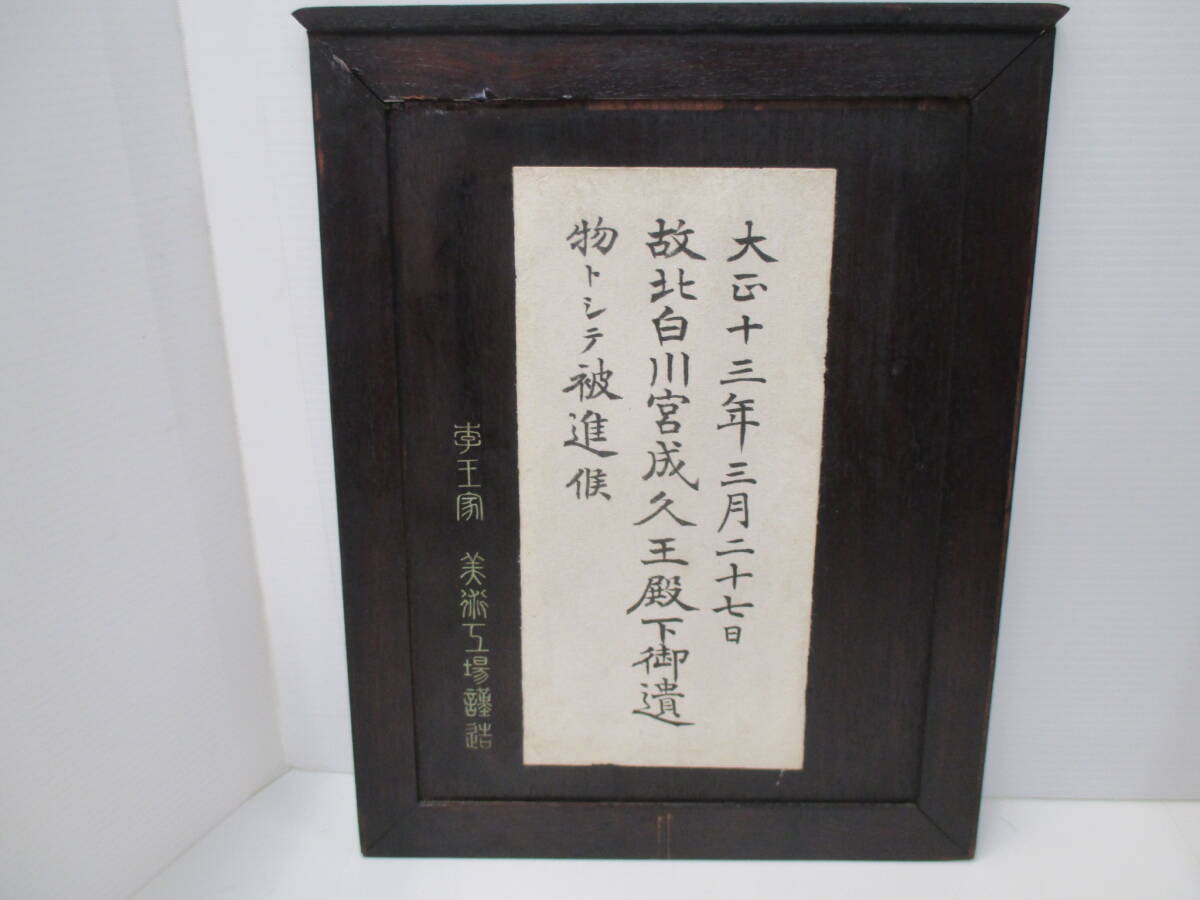 大正十三年三月二十七日
故北白川宮成久王殿下御遺
物トシテ被進候
李王家 美術工場謹造